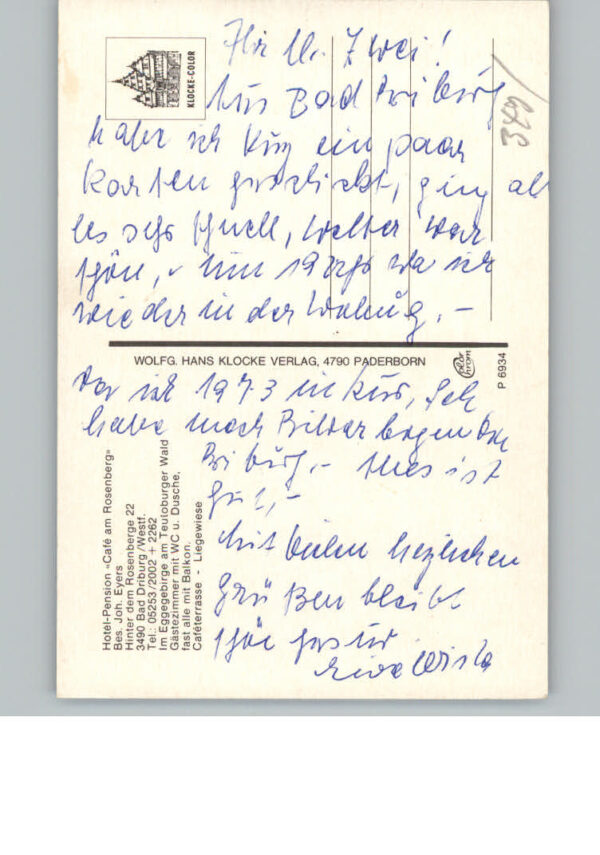 Zwei!
Aus Bad Driburg
habe ich kurz ein paar
Karten geschickt, ging al
les sehr schnell, Wetter war
schön, um 19 Uhr war ich
wieder in der Wohnung. -
WOLFG. HANS KLOCKE VERLAG, 4790 PADERBORN
Color chrom
P 6934
KLOCKE-COLOR
349
1973 in Kur, Ich
habe noch Bilderbogen von
Driburg. - Alles ist
gut, -
Mit vielen herzlichen
Grüßen bleibt
Hotel-Pension «Café am Rosenberg»
Bes. Joh. Eyers
Hinter dem Rosenberge 22
3490 Bad Driburg/Westf.
Tel.: 05253/2002 + 2262
Im Eggegebirge am Teutoburger Wald
Gästezimmer mit WC u. Dusche,
fast alle mit Balkon.
Caféterrasse - Liegewiese